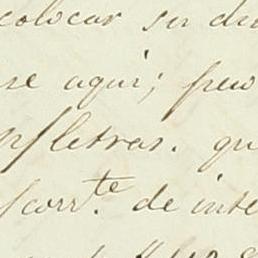 colocar su di
se aqui; pero
p/ letras. qu
corr.te de inte